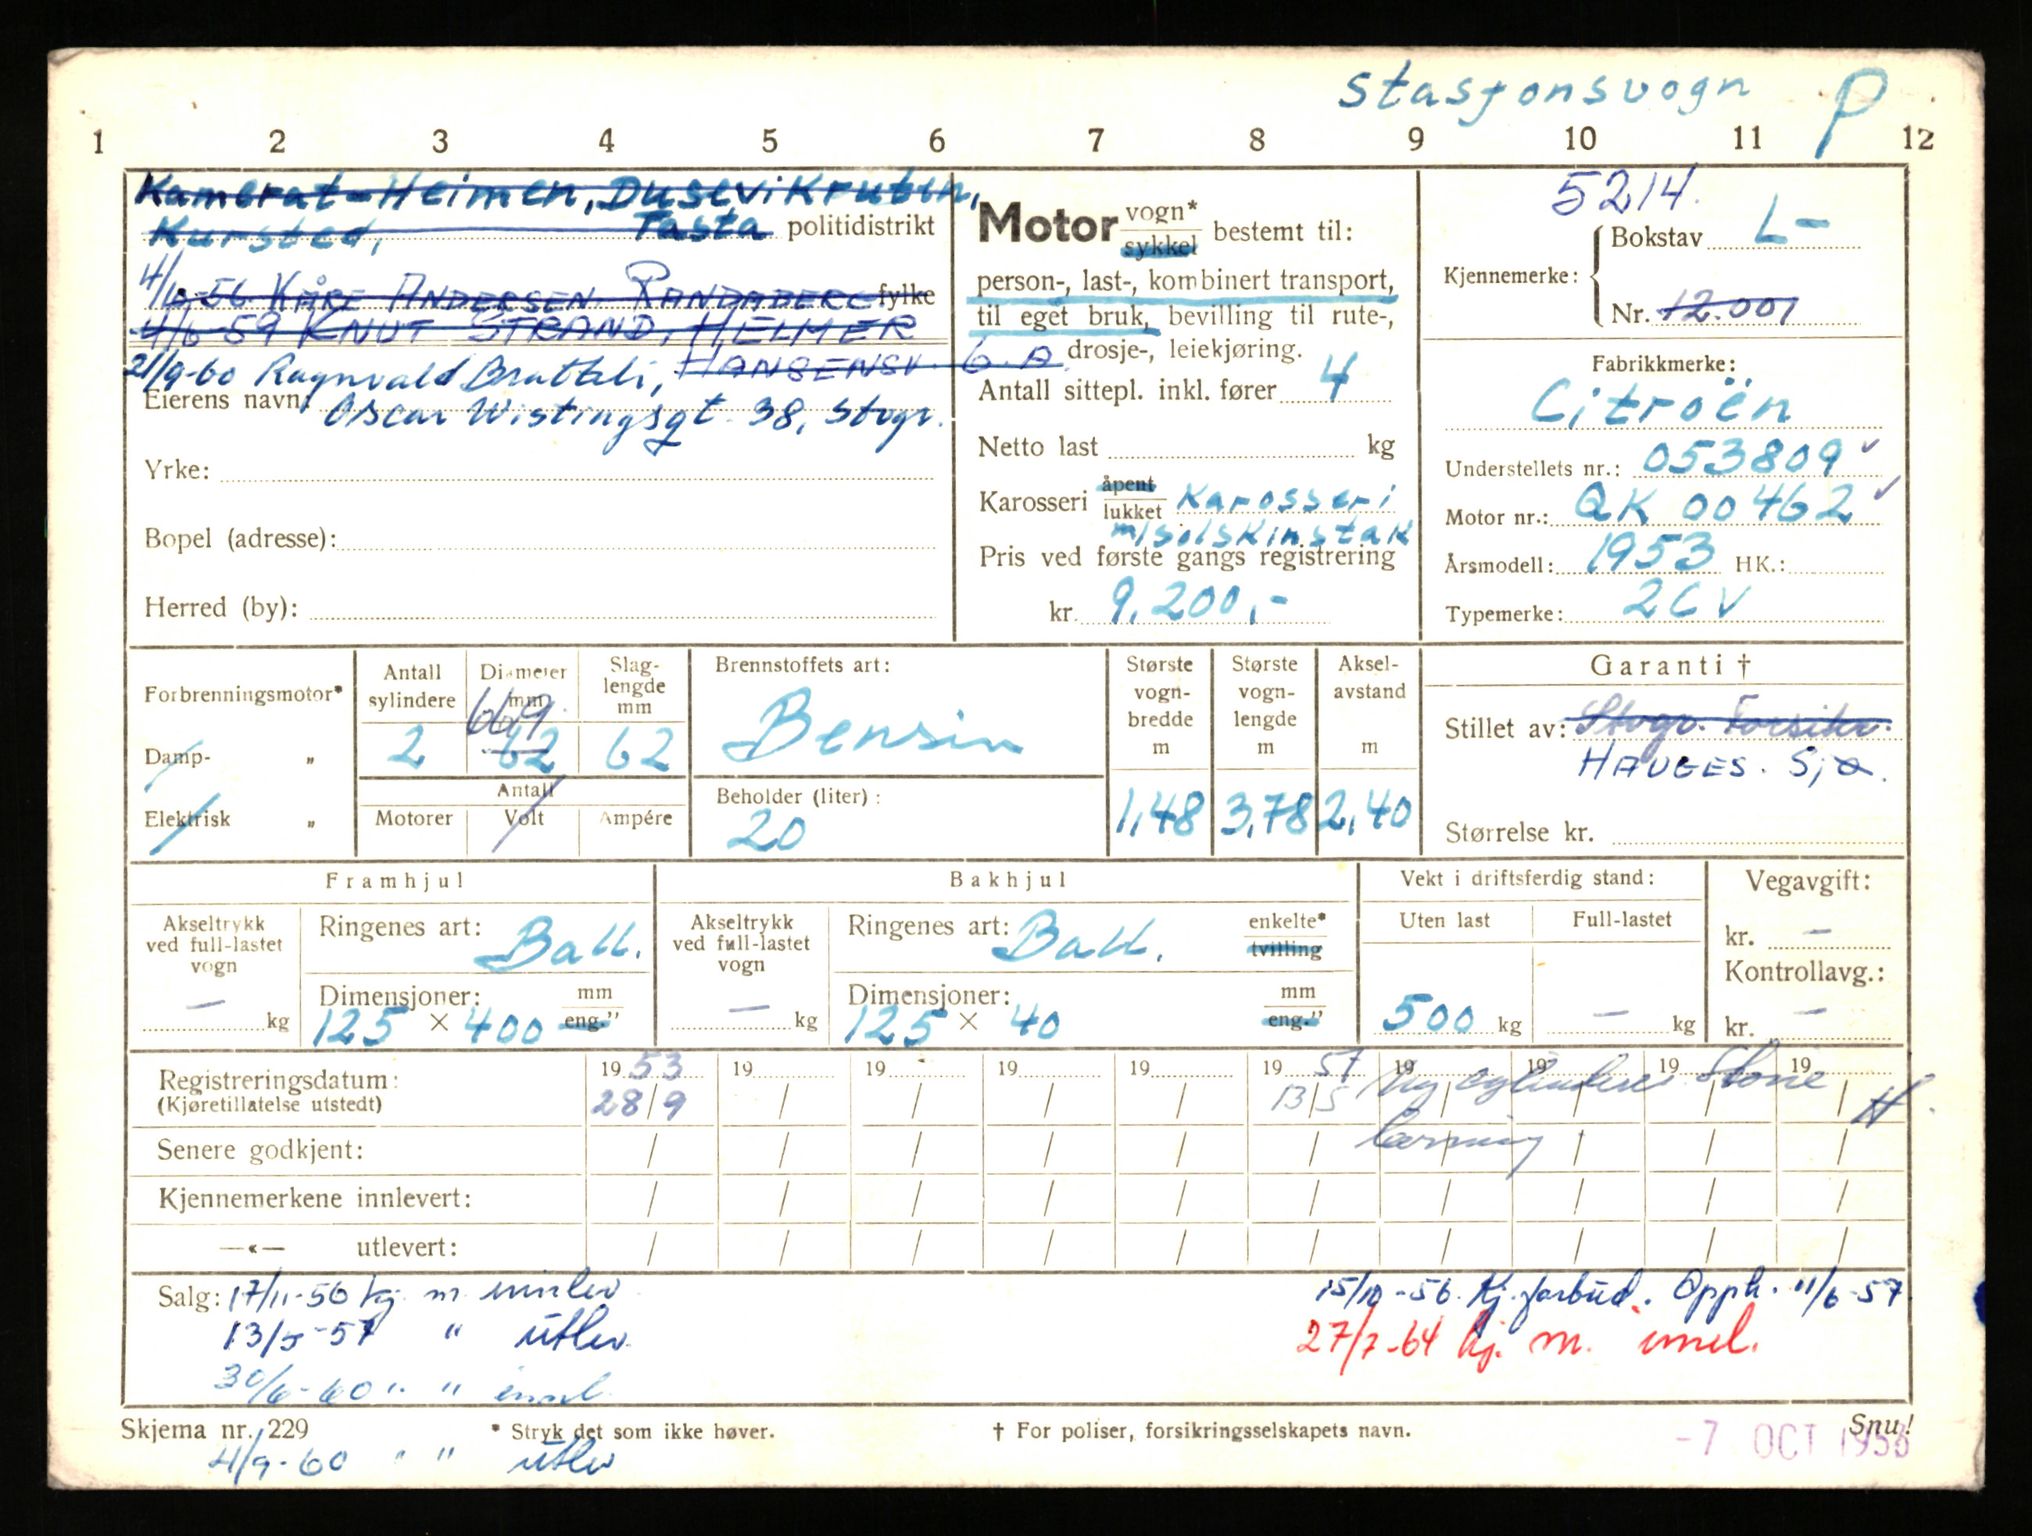 Stasjonsvogn P
1 2 3 4 5 6 7 8 9 10 11 12
Kamerat-Heimen, Dusevikrubin,
Kursted, Tasta politidistrikt
4/10-56 KÅRE ANDERSEN fylke
4/6 59 KNUT STRAND, HELMER
HANSENSV. 6. A
21/9-60 Ragnvald Brattli,
Eierens navn: Oscar Wistingsgt. 38, Stvgr.
Yrke:
Bopel (adresse):
Herred (by):
Motor vogn* sykkel bestemt til:
person-, last-, kombinert transport,
til eget bruk, bevilling til rute-,
drosje-, leiekjøring.
Antall sittepl. inkl. fører 4
Netto last kg
Karosseri åpent lukket Karosseri
m/solskinstak
Pris ved første gangs registrering
kr. 9.200,-
5214.
Kjennemerke: Bokstav L-
Nr. 12.001
Fabrikkmerke:
Citroën
Understellets nr.: 053809
Motor nr.: QK 00462
Årsmodell: 1953 HK.:
Typemerke: 2CV
Forbrenningsmotor*
Damp- "
Elektrisk "
Antall sylindere
2
Diameter mm
669
62
Slag-lengde mm
62
Antall
Motorer Volt Ampére
Brennstoffets art:
Bensin
Beholder (liter):
20
Største vogn-bredde m
1,48
Største vogn-lengde m
3,78
Aksel-avstand m
2,40
Garanti †
Stillet av: Stvgr. Forsikr.
HAUGES. S;
Størrelse kr.
Framhjul
Akseltrykk ved full-lastet vogn
— kg
Ringenes art: Ball.
Dimensjoner: mm eng."
125 × 400
Bakhjul
Akseltrykk ved full-lastet vogn
— kg
Ringenes art: Ball. enkelte* tvilling
Dimensjoner: mm eng."
125 × 40
Vekt i driftsferdig stand:
Uten last Full-lastet
500 kg — kg
Vegavgift:
kr. —
Kontrollavg.:
kr. —
Registreringsdatum: 19 53 19 19 19 19 19 57 19 19 19 19
(Kjøretillatelse utstedt) 28/9 13/5 Ny cylinder
Senere godkjent:
Kjennemerkene innlevert:
—«— utlevert:
Salg: 17/11-56 kj. m. innlev
13/5-57 " utlev.
30/6-60 " " innl.
15/10-56. Kj.forbud. Opph. 11/6-57.
27/7-64 kj. m. innl.
Skjema nr. 229 * Stryk det som ikke høver. † For poliser, forsikringsselskapets navn. Snu!
4/9-60 " " utlev
-7 OCT 1953